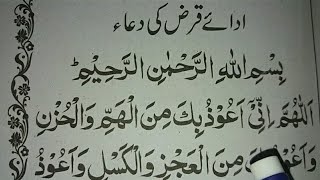 ادائے قرض کی دعاء
بِسْمِ اللهِ الرَّحْمٰنِ الرَّحِيْمِ ط
اَللّٰهُمَّ اِنِّیْ اَعُوْذُ بِكَ مِنَ الْهَمِّ وَالْحُزْنِ
وَاَعُوْذُ بِكَ مِنَ الْعَجْزِ وَالْكَسَلِ وَاَعُوْذُ